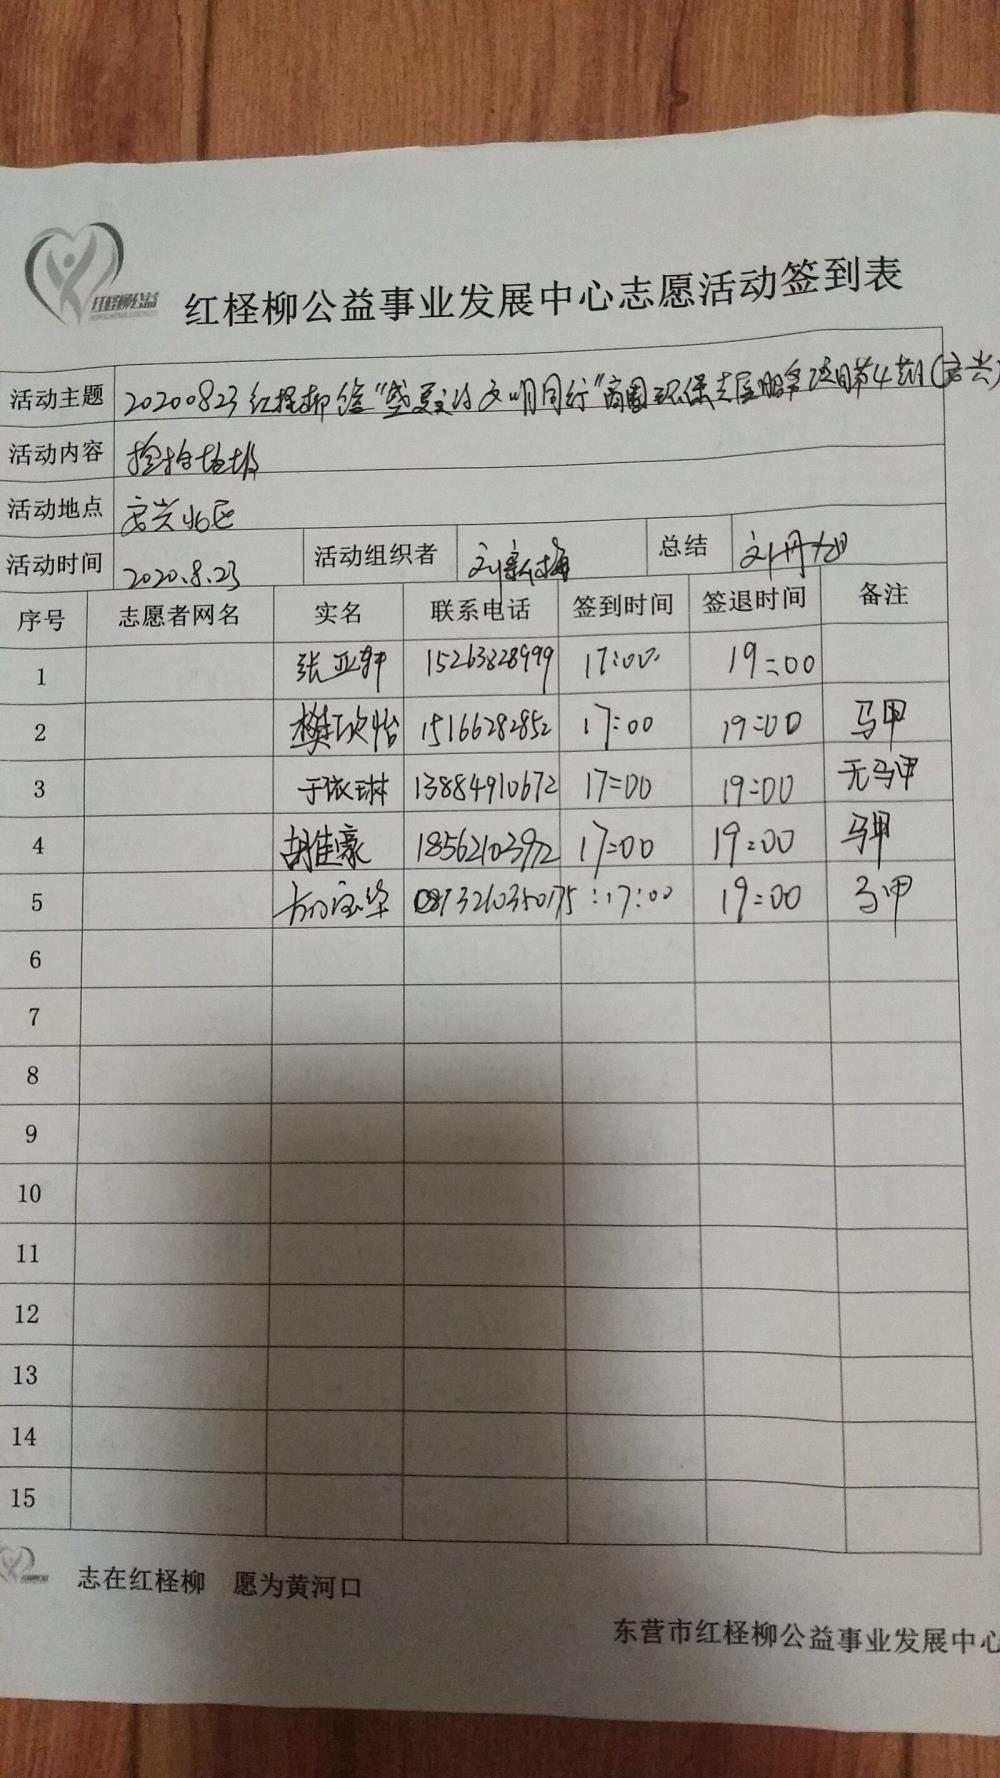 红柽柳公益
红柽柳公益事业发展中心志愿活动签到表
活动主题 20200823红柽柳 "盛夏 文明同行"商圈环保志愿服务项目第4期
活动内容 捡拾垃圾
活动地点
活动时间 2020.8.23 活动组织者 刘新梅 总结 刘丹旭
序号 志愿者网名 实名 联系电话 签到时间 签退时间 备注
1 张亚轩 15263828999 17:00 19:00
2 樊欣怡 15166282852 17:00 19:00 马甲
3 于依琳 13884910672 17:00 19:00 无马甲
4 胡佳豪 18562103972 17:00 19:00 马甲
5 17:00 19:00 马甲
6
7
8
9
10
11
12
13
14
15
志在红柽柳 愿为黄河口
东营市红柽柳公益事业发展中心